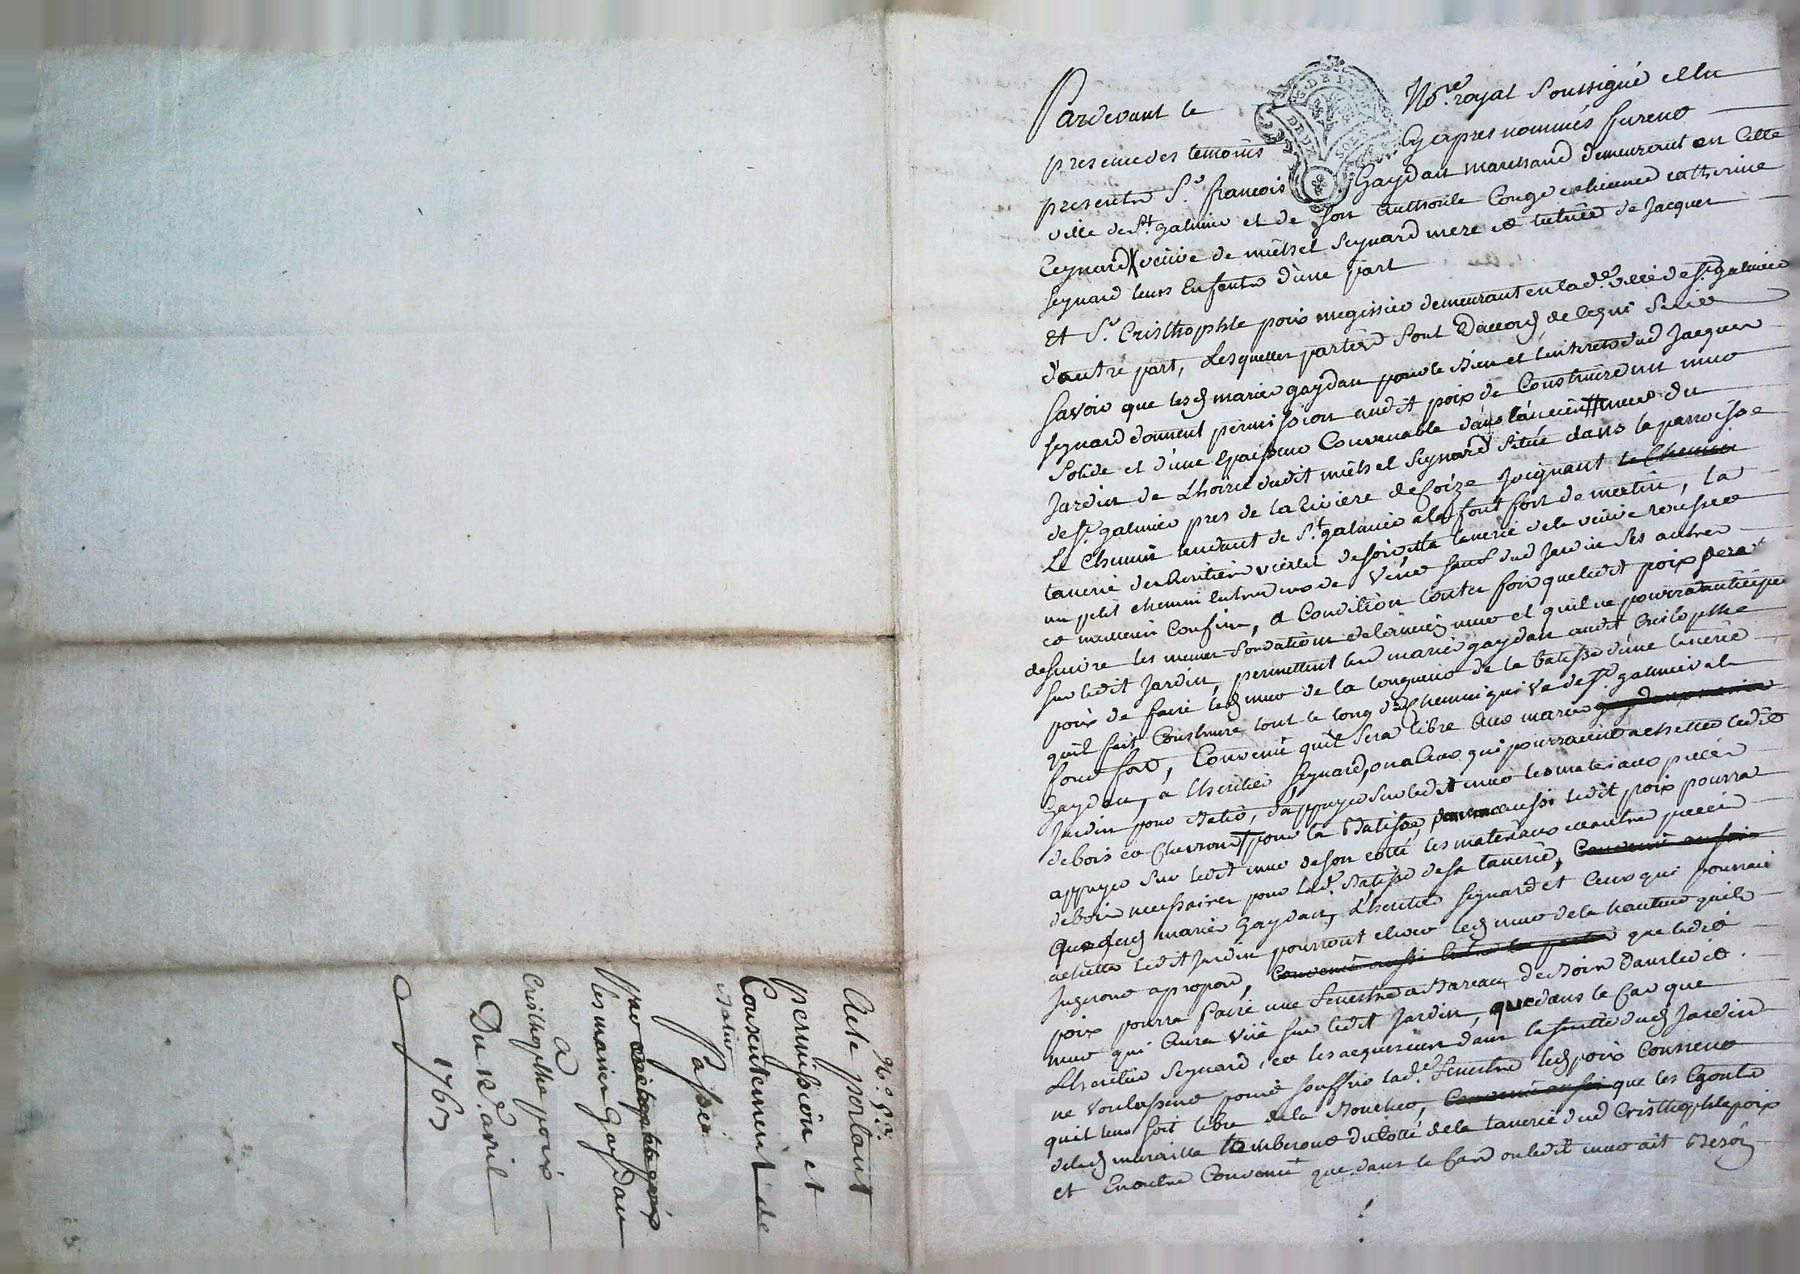 Pardevant le No.re royal Soussigné et En
presence des temoins Cy apres nommés furent
presents S.r francois Gaydan marchand demeurant en Cette
ville de S.t galmier et de son authorité Congé et licence catherine
Reynard veuve de michel Seynard mere et tutrice de Jacques
Seynard leurs Enfants d'une part
et S.r Cristhophle poix megissier demeurant en lad.e ville de S.t galmier
d'autre part, Lesquelles parties Sont D'accord de Ce qui Suit
Savoir que lesd mariés gaydan pour le bien et l'interets dud Jacques
Seynard donnent permission audit poix de Construire un mur
Solide et d'une Epaisseur Convenable dans l'ancien mur du
Jardin de L'hoirie dudit michel Seynard Situé dans la parroisse
de S.t galmier pres de la riviere de Coize Joignant le Chemin
Le Chemin tendant de S.t galmier a la font fort de matin, la
tanerie des heritiers de soir et la tanerie de la veuve
un petit chemin Entre deux de Sauf dud Jardin Ses autres
et meilleurs Confins, a Condition toutes fois que ledit poix Sera
de suivre les memes fondations de l'ancien mur et qu'il ne pourra anticiper
Sur ledit Jardin, permettent les mariés gaydan audit Cristophle
poix de faire led mur de la longueur de la batisse d'une tanerie
qu'il fait Construire tout le long du Chemin qui va de S.t galmier a la
font fort, Convenu qu'il Sera libre aux mariés
Gaydan, a L'heritier Seynard, ou a Ceux qui pourroient achetter ledit
Jardin pour Batir, d'appuyer Sur ledit mur les materiaux pieces
de bois et Chevrons pour la Batisse, aussi ledit poix pourra
appuyer Sur ledit mur de son cotté les materiaux et autres pieces
de bois necessaires pour lad. Batisse de sa tanerie, Convenu aussi
Que lesd mariés Gaydan, L'heritier Seynard et Ceux qui pourroient
achetter ledit Jardin pourront elever led mur de la hauteur qu'ils
Jugeront apropos, Convenu aussi Entre les parties que ledit
poix pourra faire une fenestre a Bareau de Boix dans ledit
mur qui aura Vüe sur ledit Jardin, que dans le Cas que
L'heritier Seynard, et les acquereurs dans la suitte dud Jardin
ne Voulussent point souffrir lad.e fenestre led poix Consent
quil leur soit libre de la Boucher, Convenu aussi que les Egouts
de lad muraille tomberont du Cotté de la tanerie dud Cristhophle poix
et Enoutre Convenu que dans le Cas ou ledit mur ait Besoin
N.° 53.
Acte portant
permission et
Consentement de
Batir
Passé
par
les mariés Gaydan
a
Cristhophle poix
Du 12e avril
1763